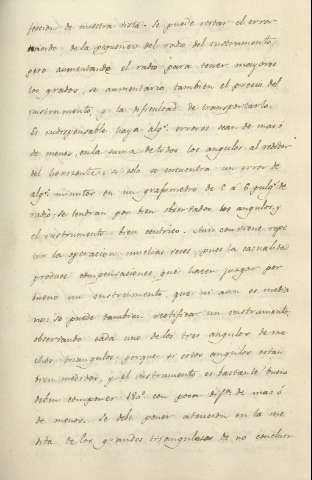 feccion de nuestra vista. Se puede cortar el erra
nando de la pequeñez del radio del instrumento,
pero aumentando el radio para tener mayores
los grados, se aumentaria tambien el precio del
instrumento y la dificultad de transportarlo.
Es indispensable haya algs. errores sean de mas ó
de menos, en la suma de todos los angulos al rededor
del horizonte; si solo se encuentra un error de
algs. minutos en un grafometro de 5 á 6 pulgs. de
radio, se tendran por bien observados los angulos, y
el instrumento bien centrico. Aun conviene repe
tir la operacion muchas veces, pues la casualidad
produce compensaciones, que hacen juzgar por
bueno un instrumento, que ni aun es media
no: se puede tambien rectificar un instrumento,
observando cada uno de los tres angulos de mu
chos triangulos, porque si estos angulos estan
bien medidos, y el instrumento es bastante bueno
deben componer 180° con poca difa. de mas ó
de menos. Se debe poner atencion en la me
dida de los grandes triangulos de no concluir